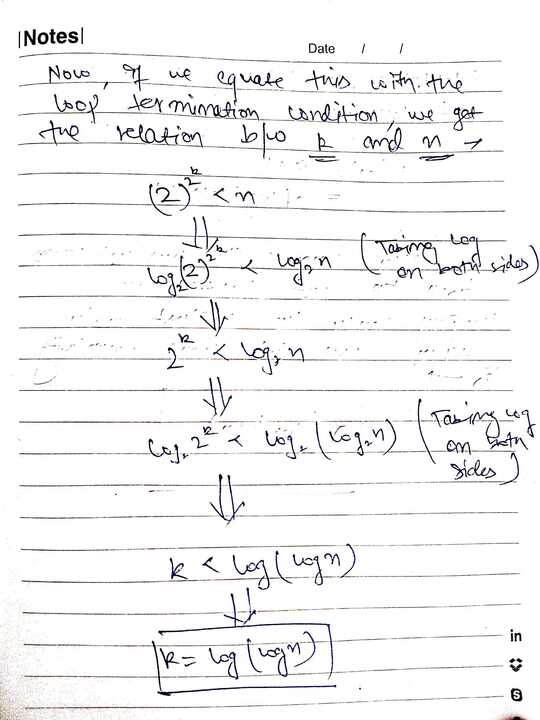 |Notes|
Date / /
Now, if we equate this with the
loop termination condition, we get
the relation b/w k and n →
(2)^2^k < n
⇓
log₂(2)^2^k < log₂n (Taking log
on both sides)
⇓
2^k < log₂n
⇓
log₂ 2^k < log₂(log₂n) (Taking log
on both
sides)
⇓
k < log(logn)
⇓
k = log(logn)
in
S